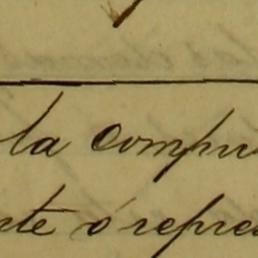 la compr
nte ó repres